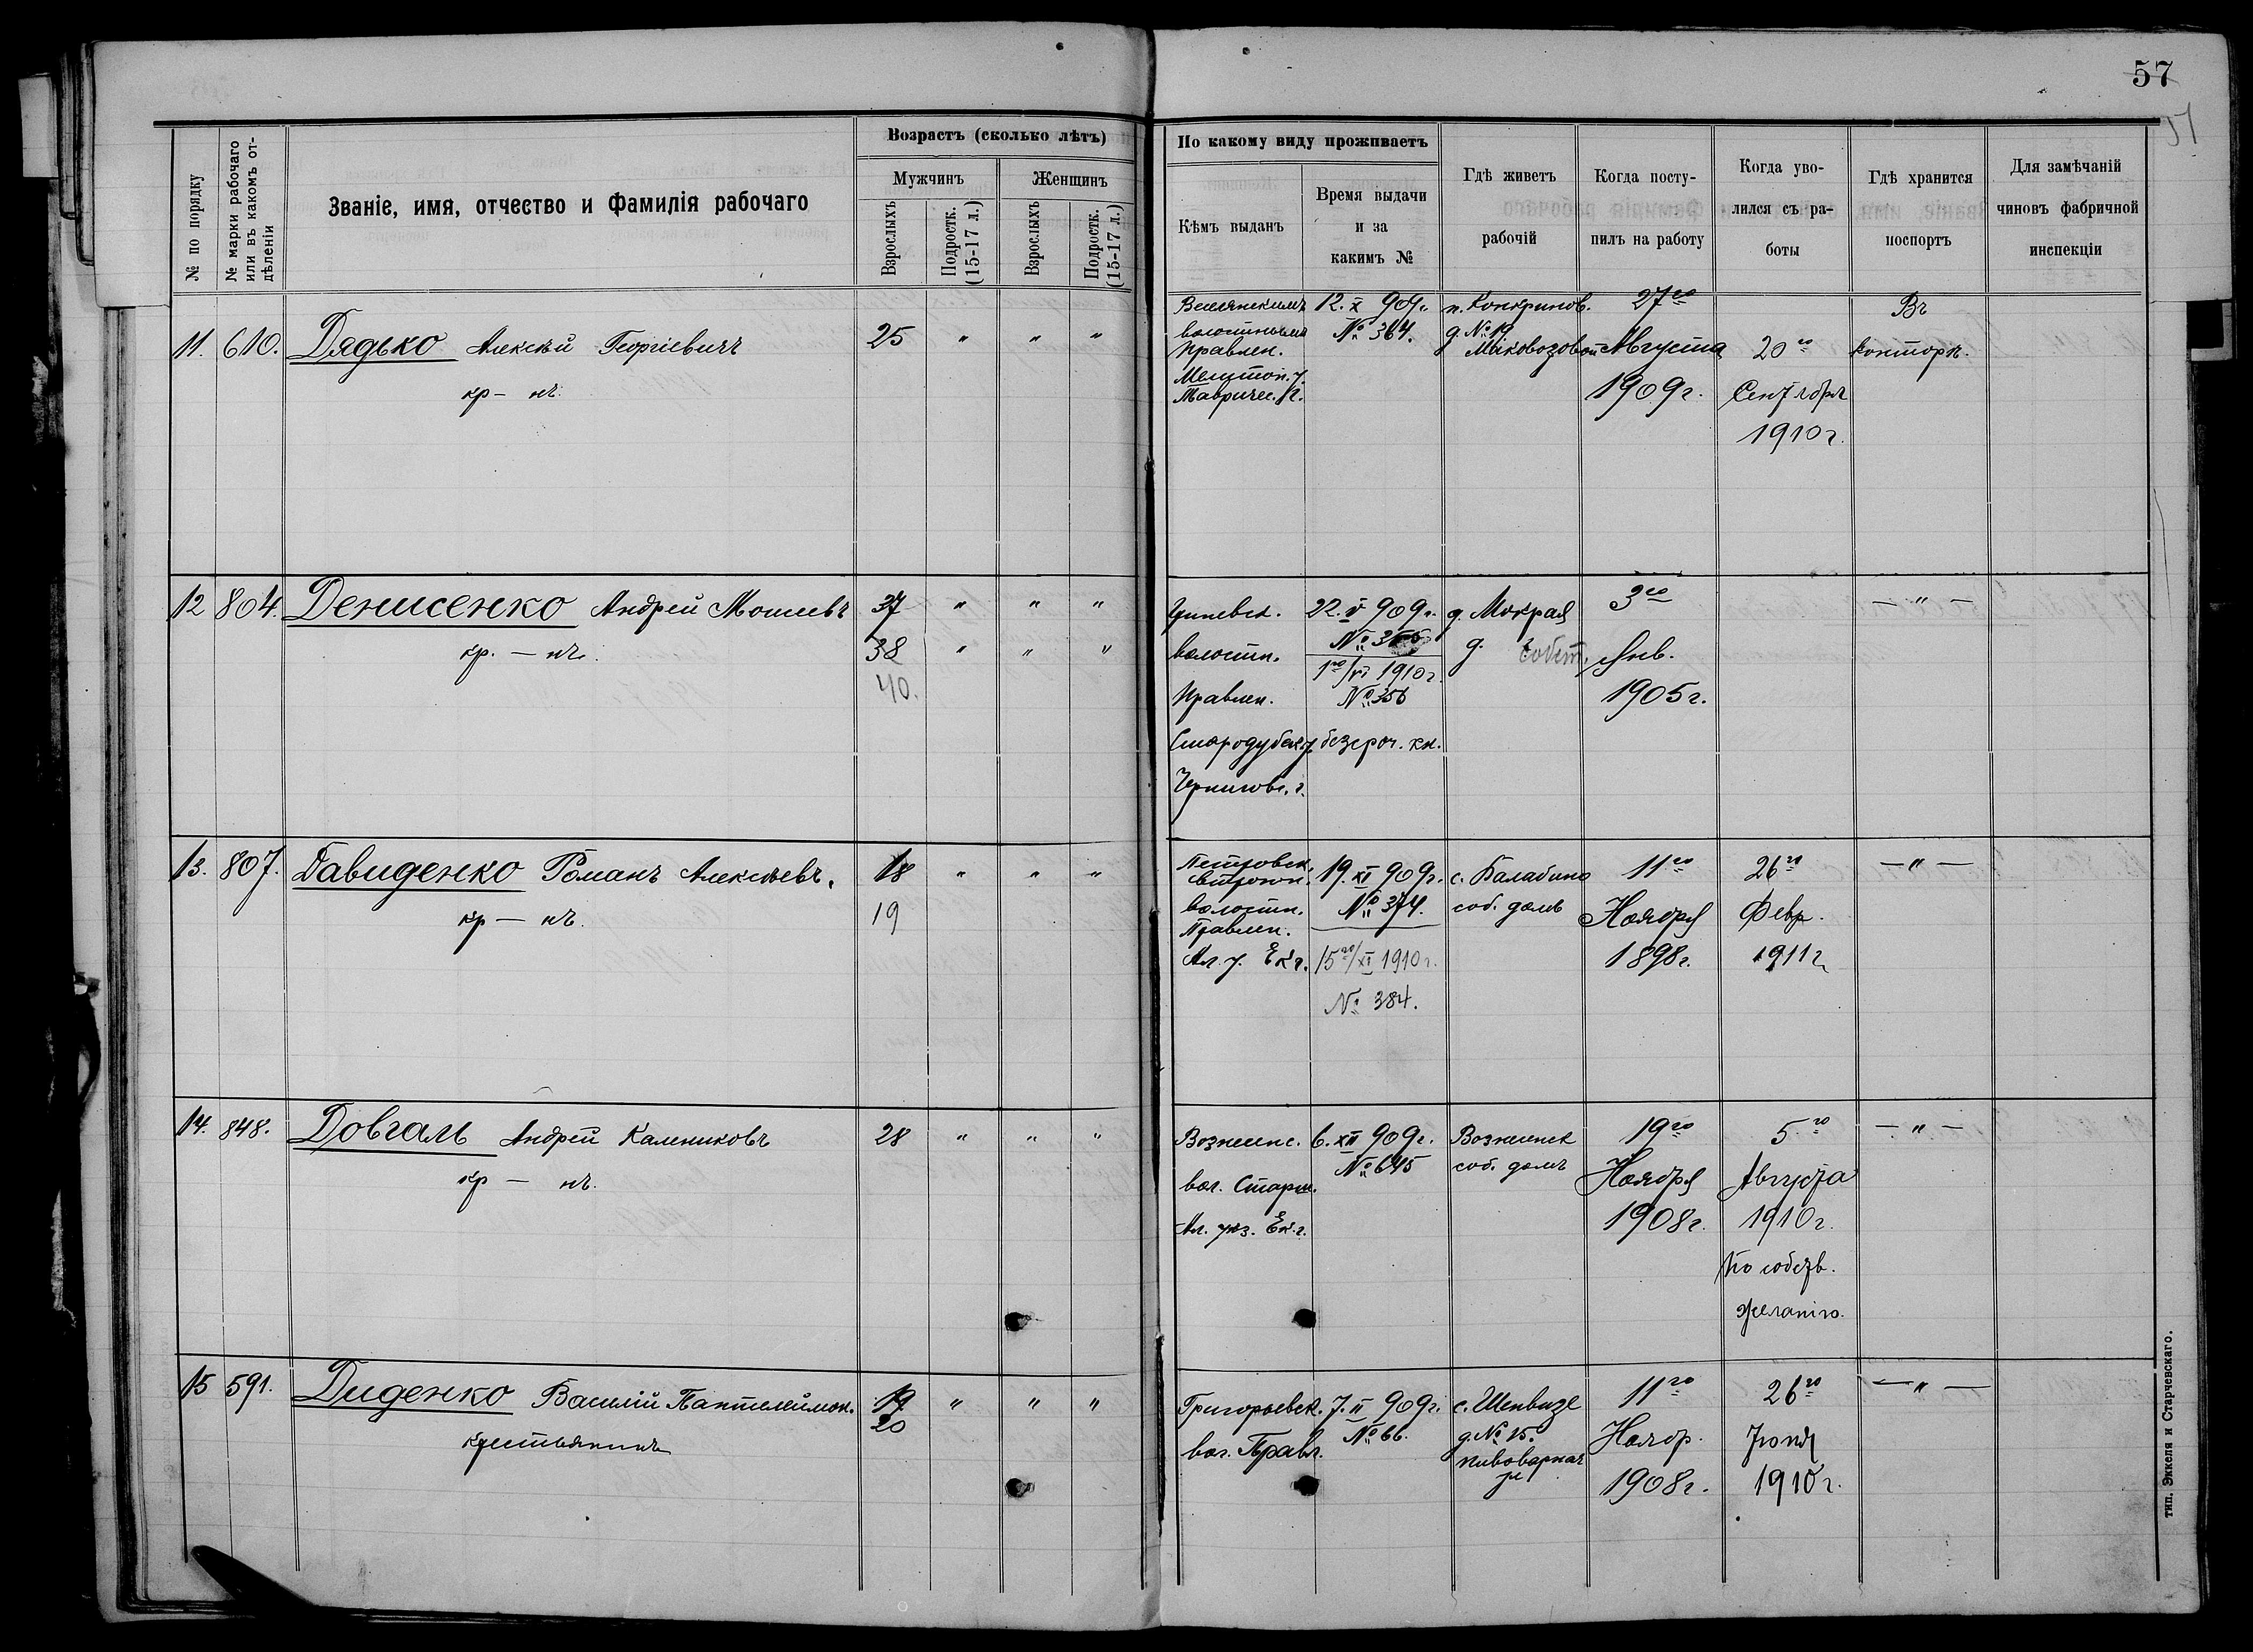 57
51
№ по порядку
№ марки рабочаго или въ какомъ отдѣленіи
Званіе, имя, отчество и фамилія рабочаго
Возрастъ (сколько лѣтъ)
Мужчинъ
Женщинъ
Взрослыхъ
Подростк. (15-17 л.)
Взрослыхъ
Подростк. (15-17 л.)
По какому виду проживаетъ
Кѣмъ выданъ
Время выдачи
и за
какимъ №
Гдѣ живетъ
рабочій
Когда посту-
пилъ на работу
Когда уво-
лился съ ра-
боты
Гдѣ хранится
поспортъ
Для замѣчаній
чиновъ фабричной
инспекціи
11. 610. Дядько Алексѣй Георгіевичъ
кр - нъ.
25 " " "
волостнымъ
Правлен.
Мелитоп. у.
Тавричес. г.
12. X 909 г.
№ 364.
д. № 19
27го
Августа
1909 г.
20го
Сентября
1910 г.
Въ
Конторѣ.
12 804. Денисенко Андрей Моисеевъ
кр. - нъ.
37 " " "
38 " " "
40.
волостн.
Правлен.
Стародубск. у.
Чернигов. г.
22. V 909 г.
1го/VI 1910 г.
№ 356
безсроч. кн.
д. Мокрая
д. собст.
3го
Янв.
1905 г.
- " -
13. 807. Давиденко Романъ Алексѣевъ.
кр - нъ.
18 " " "
19
Петровск.
волостн.
Правлен.
Ал. у. Ек. г.
19. XI 909 г.
№ 374.
15го/XI 1910 г.
№ 384.
с. Балабино
соб. домъ
11го
Ноября
1898 г.
26го
Февр.
1911 г.
- " -
14. 848. Довгаль Андрей Калениковъ
кр - нъ.
28 " " "
Вознесенс.
вол. Старш.
Ал. уѣз. Ек. г.
6. XII 909 г.
№ 645
Вознесенск
соб. домъ
19го
Ноября
1908 г.
5го
Августа
1910 г.
По собств.
желанію.
- " -
15 591. Диденко Василій Пантелеймон.
крестьянинъ
19 " " "
20
Григорьевск.
вол. Правл.
7. II 909 г.
№ 66.
с. Шенвизе
д. № 15.
пивоварная
ул
11го
Ноябр.
1908 г.
26го
Іюня
1910 г.
- " -
тип. Эккеля и Старчевскаго.